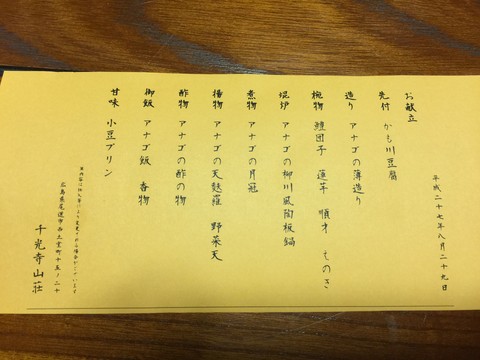 お献立
平成二十七年八月二十九日
先付 かも川豆腐
造り アナゴの薄造り
椀物 鱧団子 蓮芋 順才 えのき
焜炉 アナゴの柳川風陶板鍋
煮物 アナゴの月冠
揚物 アナゴの天麩羅 野菜天
酢物 アナゴの酢の物
御飯 アナゴ飯 香物
甘味 小豆プリン
※内容は仕入等により変更する場合がございます
広島県尾道市西土堂町十五ノ二十
千光寺山荘